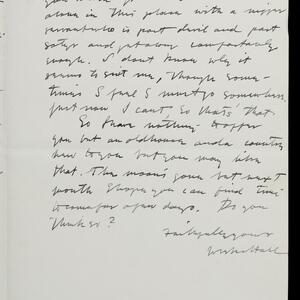 alone in this place with a
servant who is part devil and part
satyr and get along comfortably
enough. I don't know why it
seems to suit me, though some-
times I feel I must go somewhere.
Just now I can't. So that's that.
So I have nothing to offer
you but an old house and a country
new to you but you may like
that. The moon's gone but next
month I hope you can find time
to come for a few days. Do you
think so?
Faithfully yours